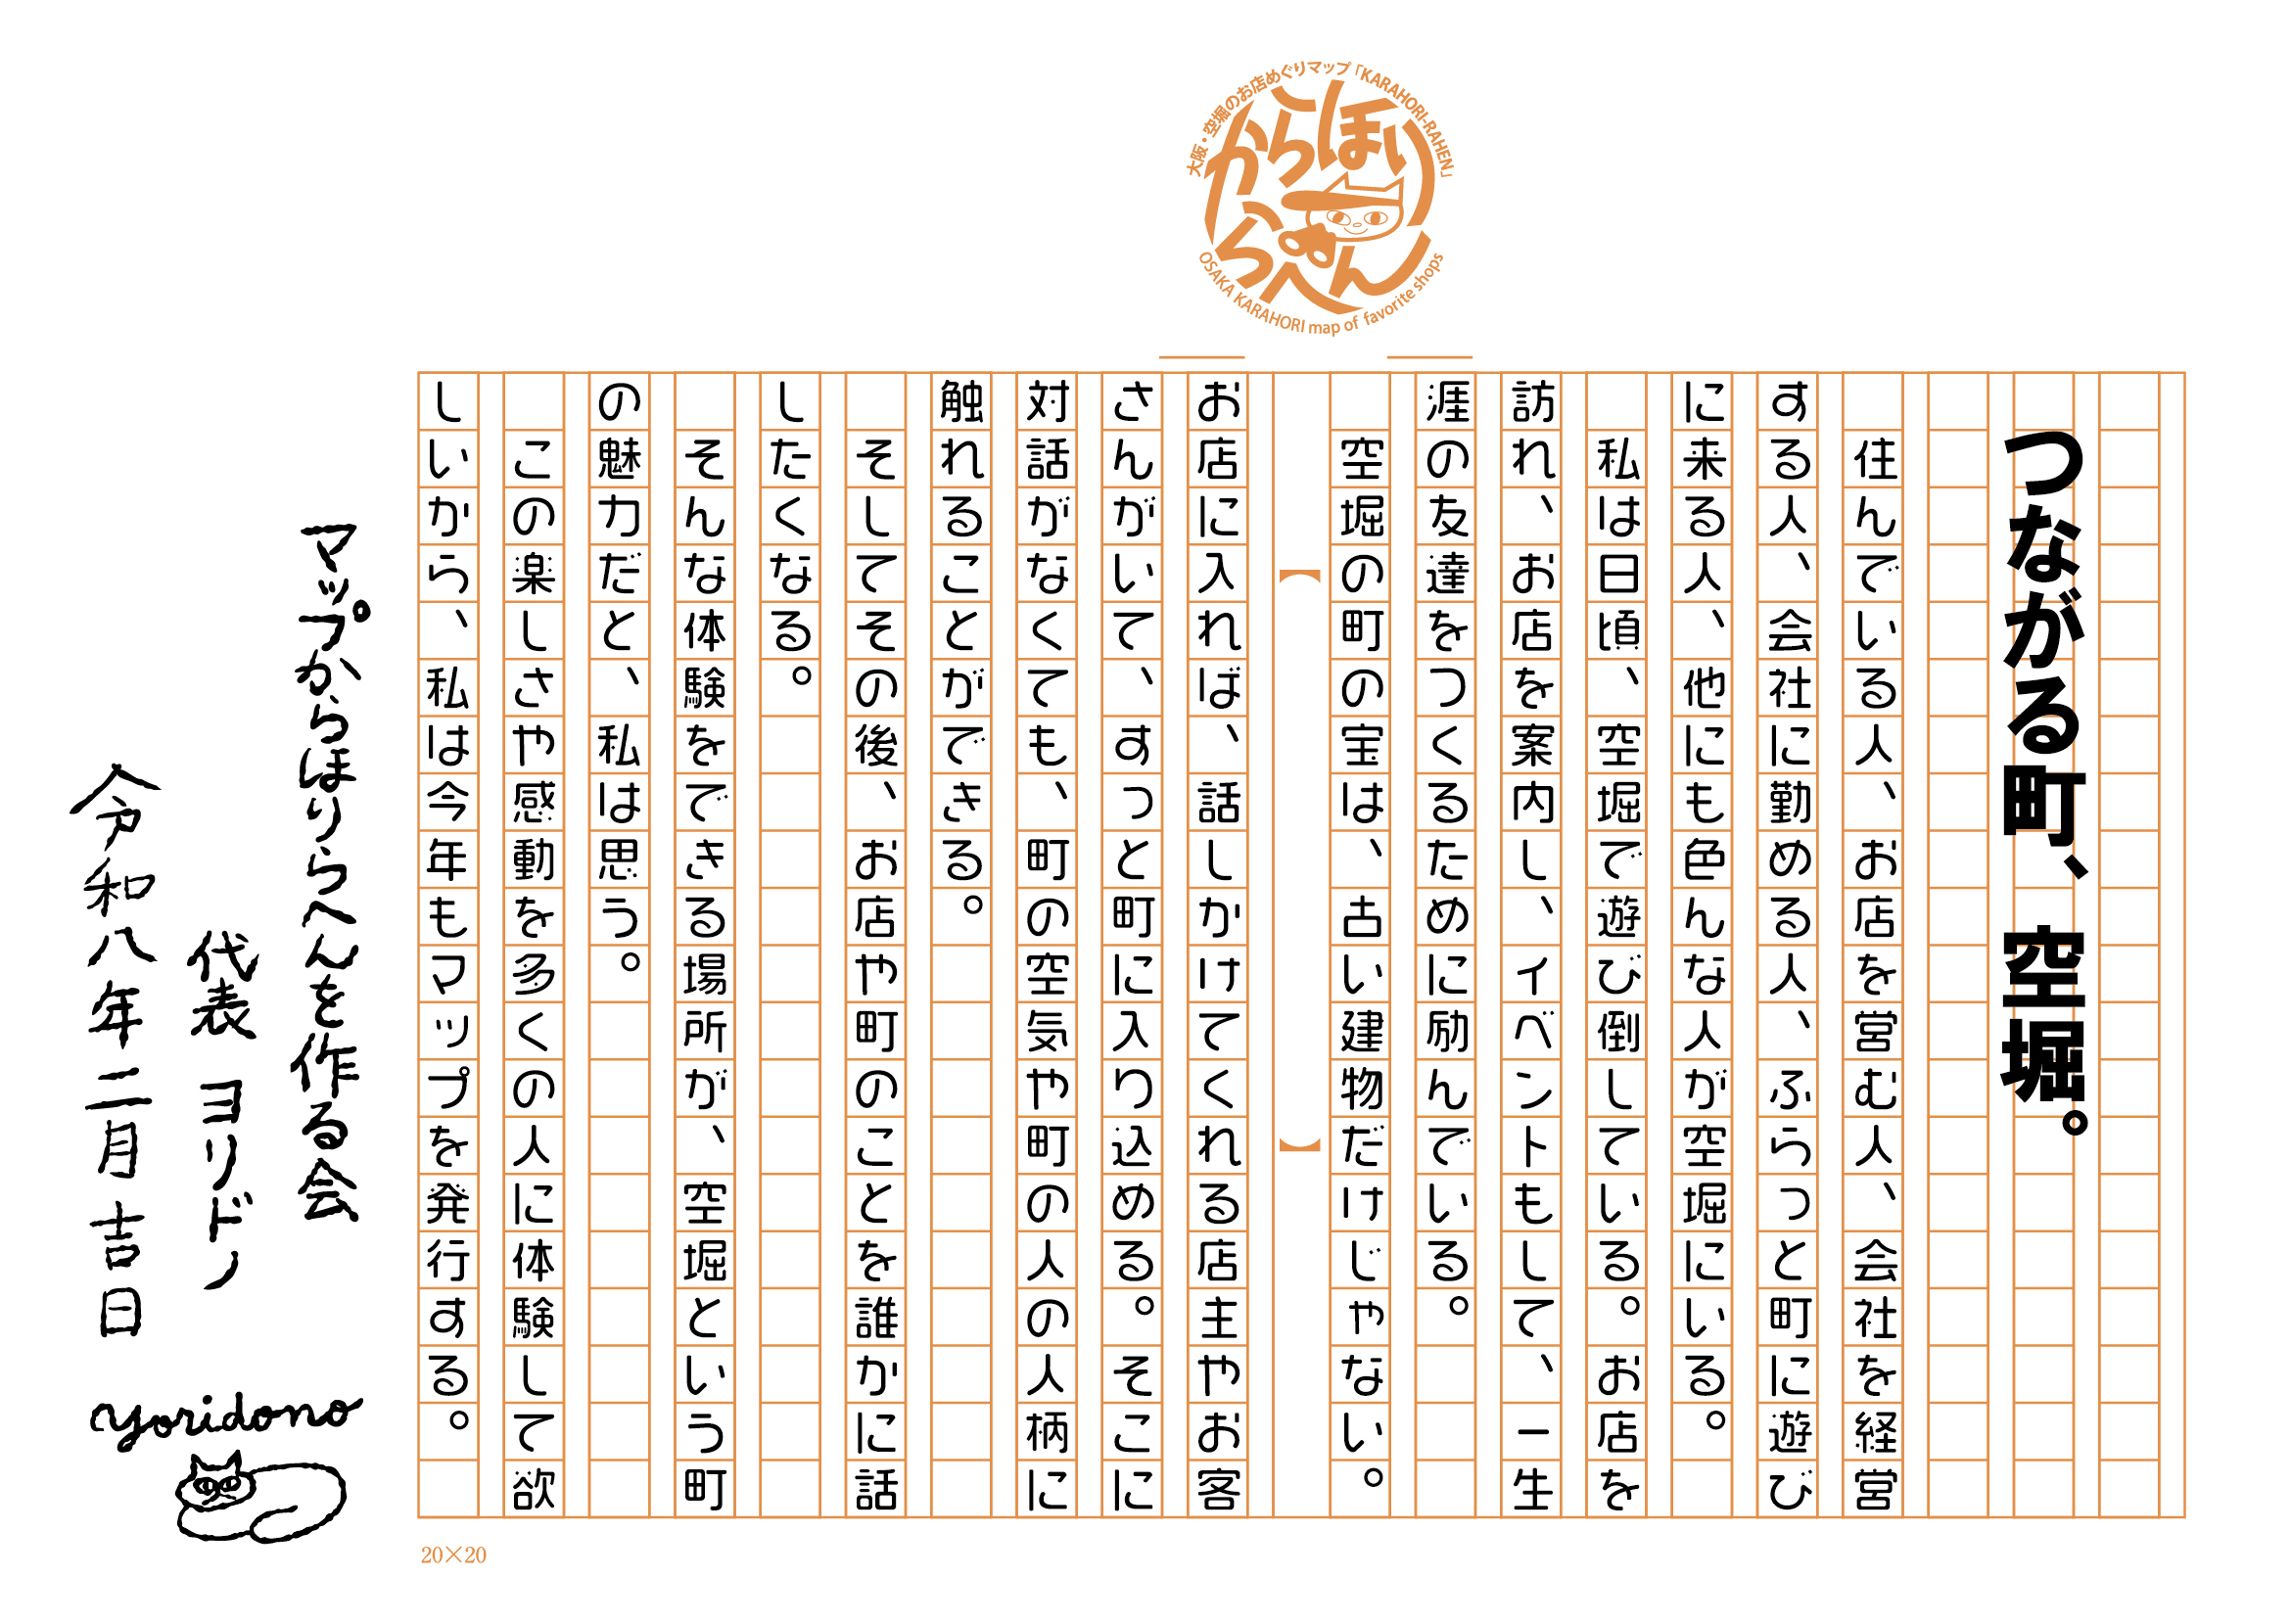 大阪・空堀のお店めぐりマップ「KARAHORI-RAHEN」
からほり
らへん
OSAKA KARAHORI map of favorite shops
つながる町、空堀。
住んでいる人、お店を営む人、会社を経営
する人、会社に勤める人、ふらっと町に遊び
に来る人、他にも色んな人が空堀にいる。
私は日頃、空堀で遊び倒している。お店を
訪れ、お店を案内し、イベントもして、一生
涯の友達をつくるために励んでいる。
空堀の町の宝は、古い建物だけじゃない。
お店に入れば、話しかけてくれる店主やお客
さんがいて、すっと町に入り込める。そこに
対話がなくても、町の空気や町の人の人柄に
触れることができる。
そしてその後、お店や町のことを誰かに話
したくなる。
そんな体験をできる場所が、空堀という町
の魅力だと、私は思う。
この楽しさや感動を多くの人に体験して欲
しいから、私は今年もマップを発行する。
マップからほりらへんを作る会
代表 ヨリドノ
令和八年二月吉日
yoridono
20×20